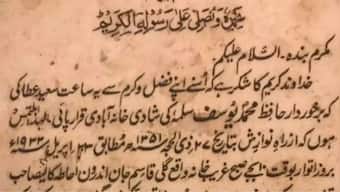 نحمدہ ونصلی علی رسولہ الکریم
مکرم بندہ۔ السلام علیکم۔
خداوند کریم کا شکر ہے کہ اُسنے اپنے فضل وکرم سے یہ ساعت سعید عطا کی
کہ برخوردار حافظ محمد یوسف سلمہٗ کی شادی خانہ آبادی قرار پائی۔ لہذا ملتمس
ہوں کہ از راہ نوازش بتاریخ ۲۷ ذی الحجہ ۱۳۵۱ھ مطابق ۲۳ اپریل ۱۹۳۳ء
بروز اتوار بوقت بجے صبح غریب خانہ واقع گلی قاسم جان اندرون احاطہ کالے صاحب